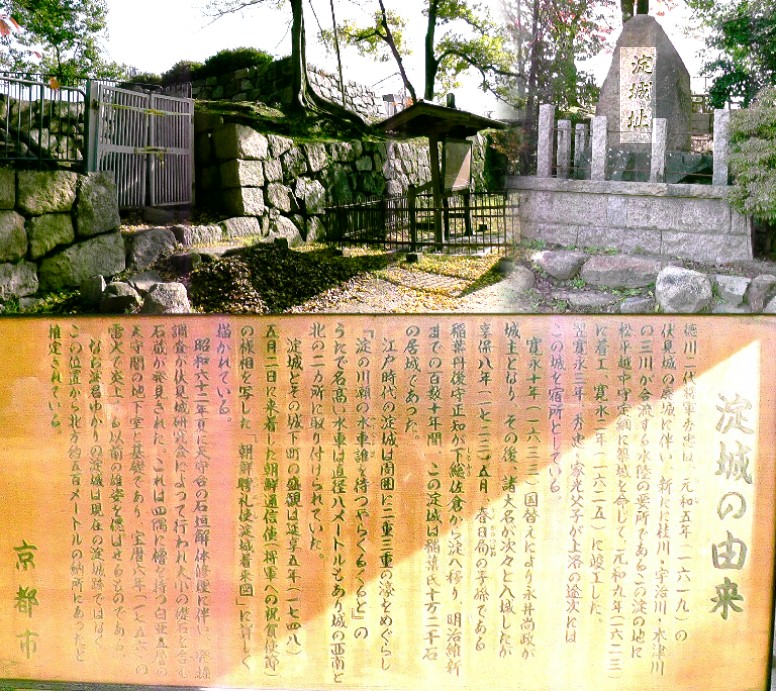 淀城址
淀城の由来
徳川二代将軍秀忠は、元和五年(一六一九)の
伏見城の廃城に伴い、新たに桂川・宇治川・木津川
の三川が合流する水陸の要所であるこの淀の地に
松平越中守定綱に築城を命じて、元和九年(一六二三)
に着工、寛永二年(一六二五)に竣工した。
翌寛永三年、秀忠・家光父子が上洛の途次には
この城を宿所としている。
寛永十年(一六三三)国替えにより永井尚政が
城主となり、その後、諸大名が次々と入城したが
享保八年(一七二三)五月、春日局の子孫である
稲葉丹後守正知が下総佐倉から淀へ移り、明治維新
までの百数十年間、この淀城は稲葉氏十万二千石
の居城であった。
江戸時代の淀城は周囲に二重三重の濠をめぐらし
『淀の川瀬の水車誰を待つやらくるくると』の
うたで名高い水車は直径八メートルもあり城の西南と
北の二カ所に取り付けられていた。
淀城とその城下町の盛観は延享五年(一七四八)
五月二日に来着した朝鮮通信使(将軍への祝賀使節)
の様相を写した「朝鮮聘礼使淀城着来図」に詳しく
描かれている。
昭和六十二年夏に天守台の石垣解体修理に伴い、発掘
調査が伏見城研究会によって行われ大小の礎石を含む
石蔵が発見された。これは四隅に櫓を持つ白亜五層の
天守閣の地下室と基礎であり、宝暦六年(一七五六)の
雷火で炎上する以前の雄姿を偲ばせるものである。
なお淀君ゆかりの淀城は現在の淀城跡ではなく
この位置から北方約五百メートルの納所にあったと
推定されている。
京都市